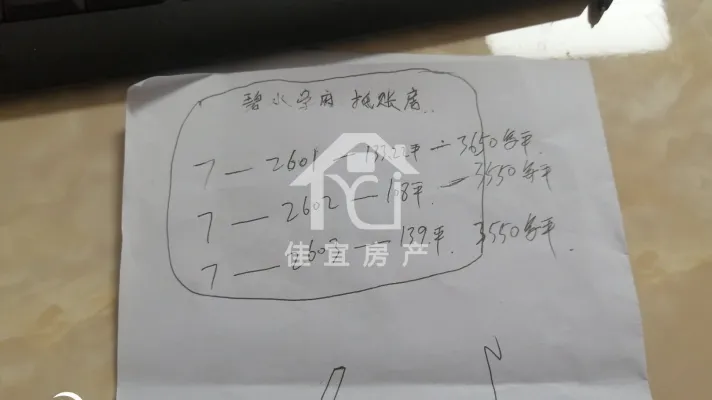 碧水学府 抵账房..
7—2601—133.22平—3650每平.
7—2602—118平.—3550每平
7—2603—139平. 3550每平.
YCJ
佳宜房产
N